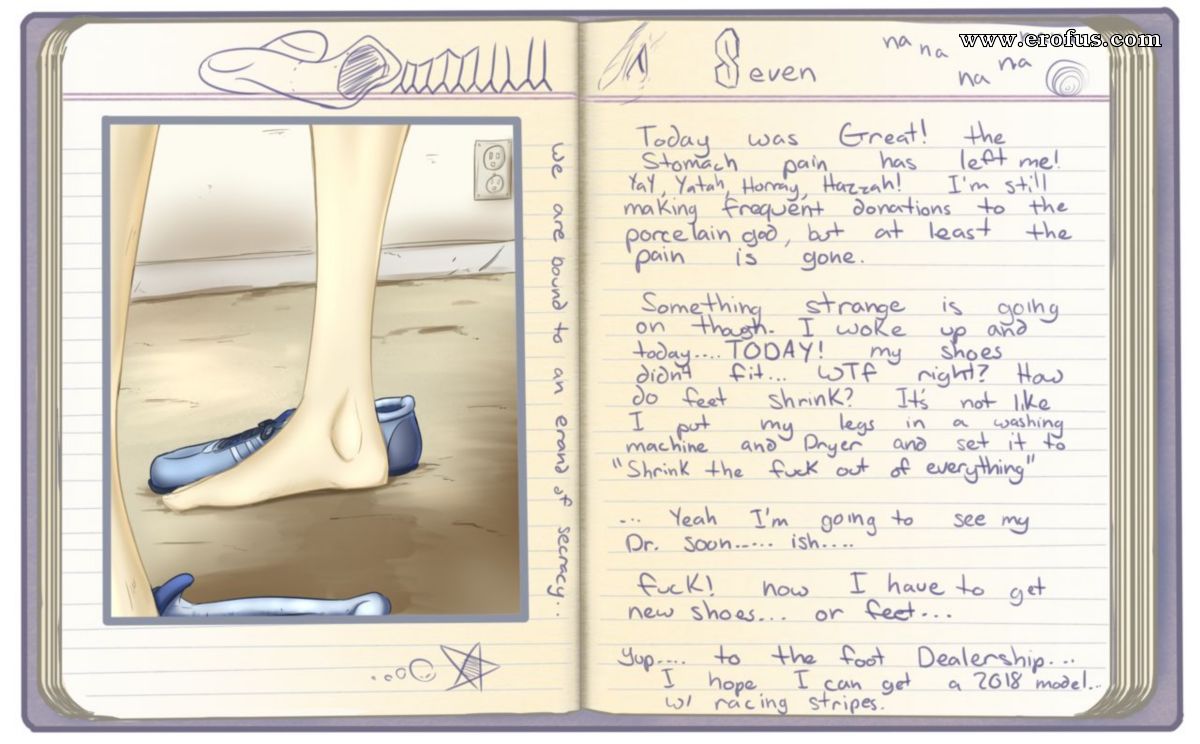 www.erofus.com
na na
na na
Seven
we are bound to an erand of secracy..
Today was Great! the
Stomach pain has left me!
Yay, Yatah, Horray, Hazzah! I'm still
making frequent donations to the
porcelain god, but at least the
pain is gone.
Something strange is going
on though. I woke up and
today.... TODAY! my shoes
didn't fit... WTF right? How
do feet shrink? It's not like
I put my legs in a washing
machine and Dryer and set it to
"Shrink the fuck out of everything"
... Yeah I'm going to see my
Dr. soon..... ish....
fuck! now I have to get
new shoes.... or feet....
Yup.... to the foot Dealership...
I hope I can get a 2018 model...
w/ racing stripes.